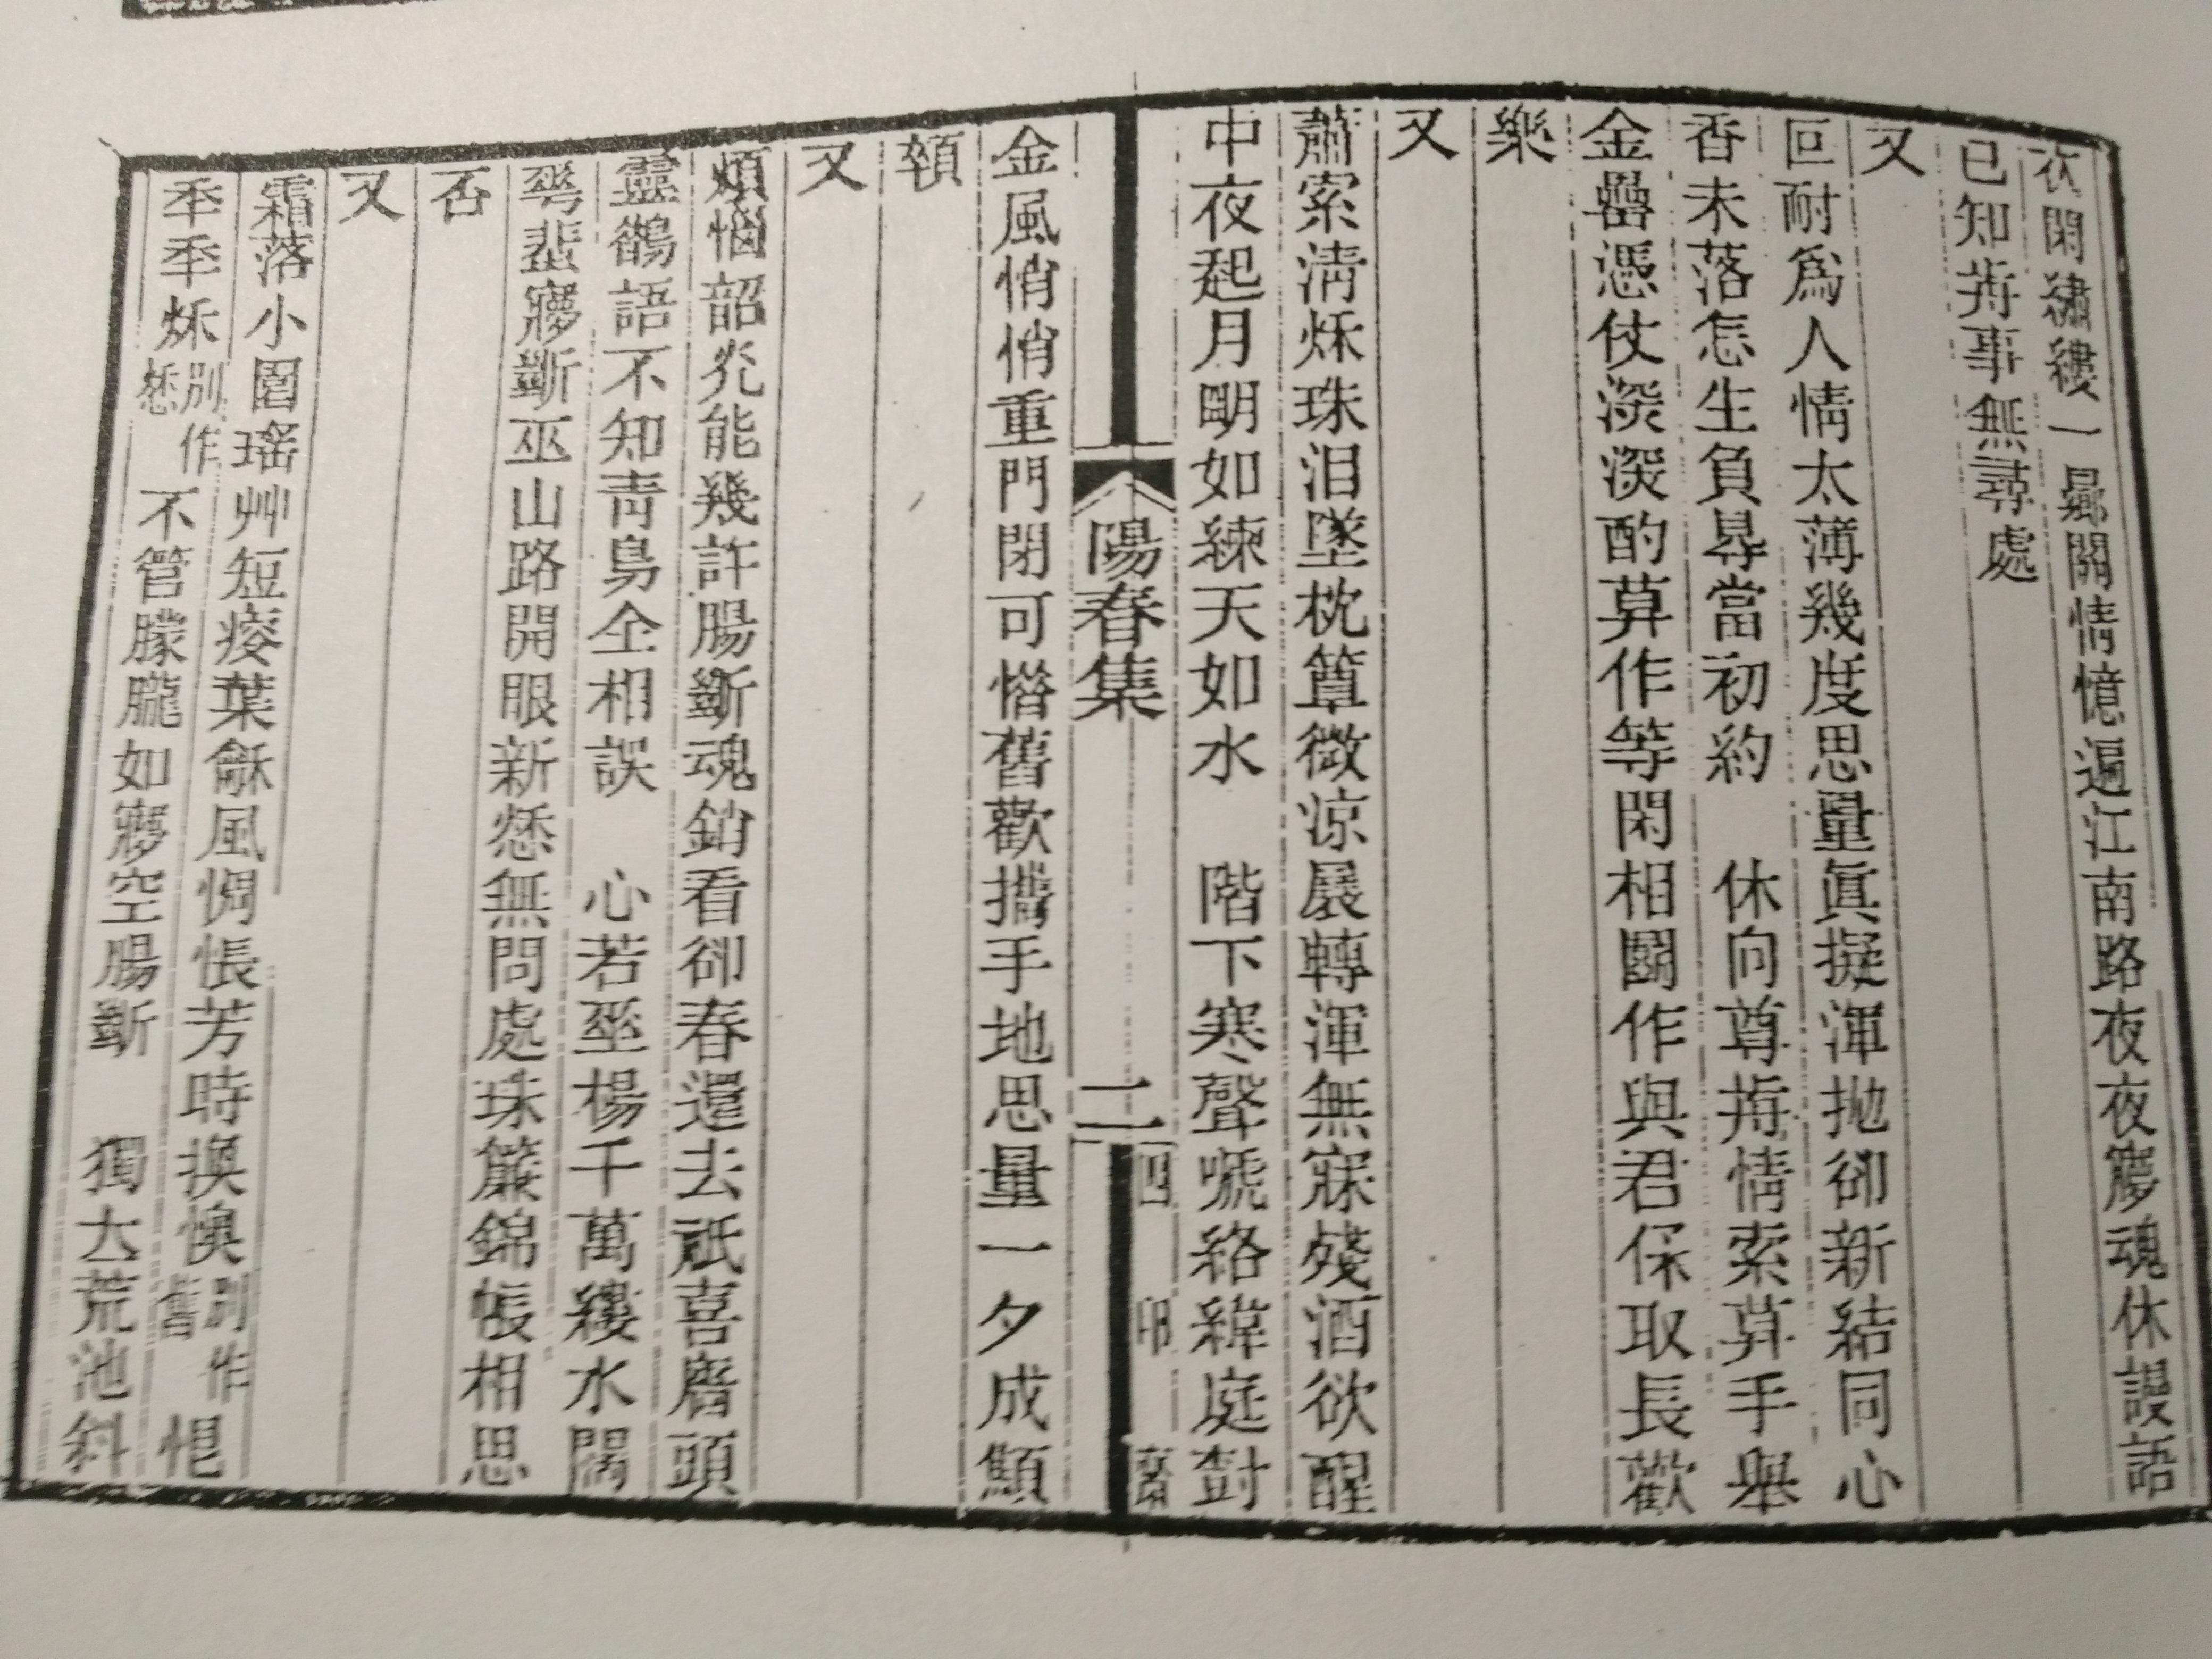 衣閑繡縷一曏關情憶遍江南路夜夜㝱魂休謾語
已知歬事無尋處
又
叵耐爲人情太薄幾度思量眞擬渾拋卻新結同心
香未落怎生負㝵當初約　休向尊歬情索莫手舉
金罍憑仗深深酌莫作等閑相鬭作與君保取長歡
樂
又
蕭索淸秌珠泪墜枕簟微涼展轉渾無寐殘酒欲醒
中夜起月朙如練天如水　階下寒聲嗁絡緯庭對
陽春集　二　四印齋
金風悄悄重門閉可憯舊歡攜手地思量一夕成顦
顇
又
煩惱韶光能幾許腸斷魂銷看卻春還去祇喜牆頭
靈鵲語不知靑鳥全相誤　心若垂楊千萬縷水闊
蕐蜚㝱斷巫山路開眼新愁無問處珠簾錦帳相思
否
又
霜落小園瑤艸短瘦葉龢風惆悵芳時換懊別作舊恨
秊秊秌別作愁不管朦朧如㝱空腸斷　獨大荒池斜